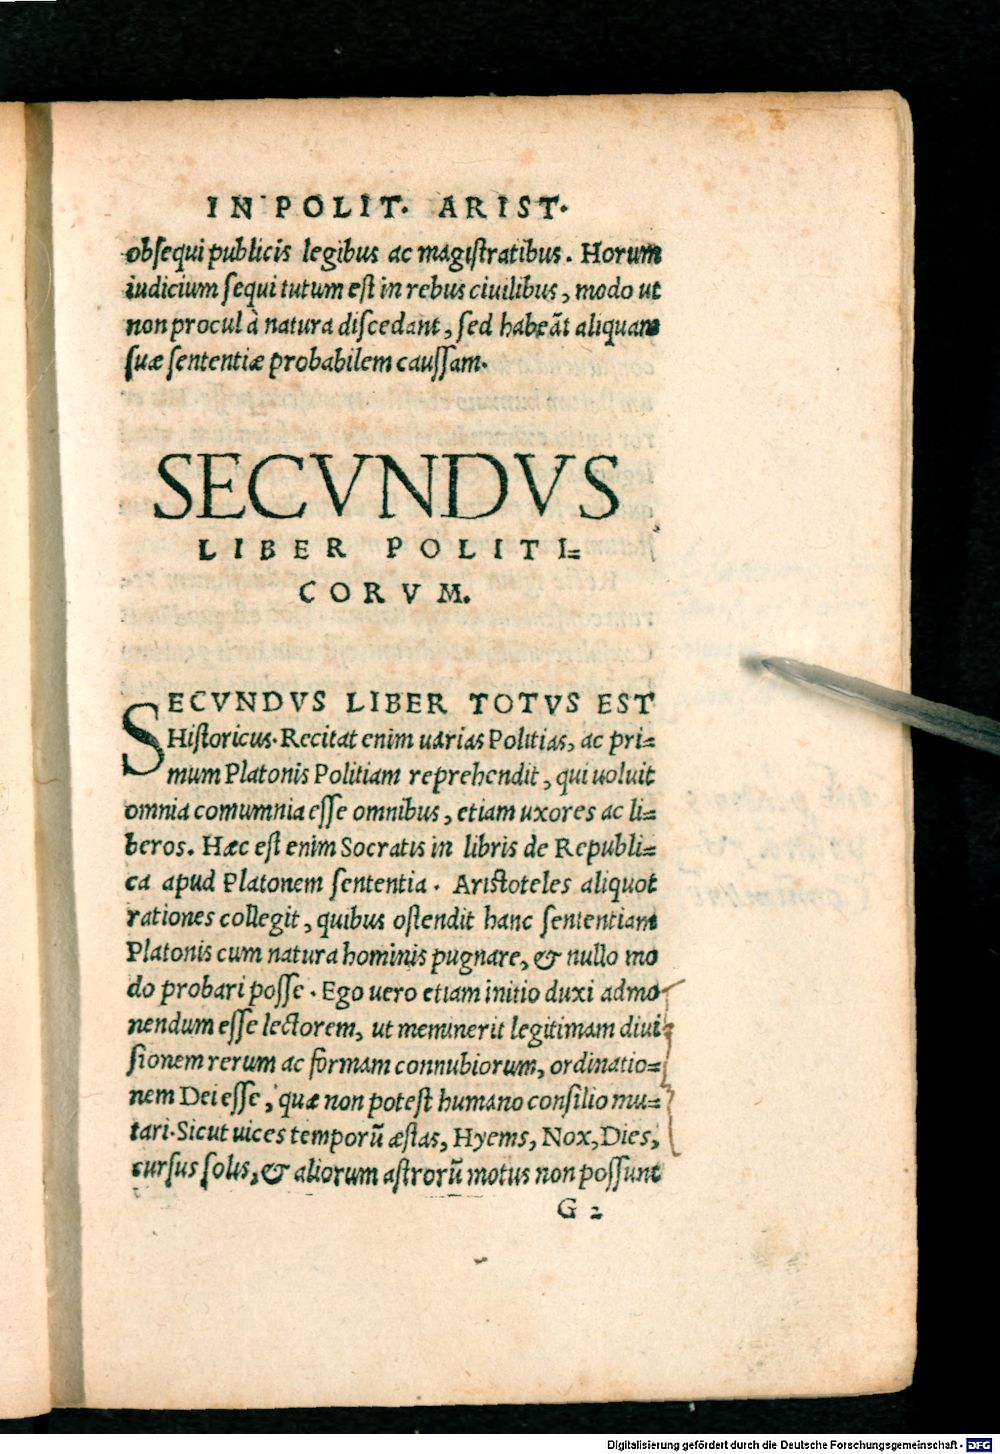 IN POLIT. ARIST.
obſequi publicis legibus ac magiſtratibus. Horum
iudicium ſequi tutum eſt in rebus ciuilibus, modo ut
non procul à natura diſcedant, ſed habeāt aliquam
ſuæ ſententiæ probabilem cauſſam.
SECVNDVS
LIBER POLITI=
CORVM.
SECVNDVS LIBER TOTVS EST
Hiſtoricus. Recitat enim uarias Politias, ac pri=
mum Platonis Politiam reprehendit, qui uoluit
omnia comumnia eſſe omnibus, etiam uxores ac li=
beros. Hæc eſt enim Socratis in libris de Republi=
ca apud Platonem ſententia. Ariſtoteles aliquot
rationes collegit, quibus oſtendit hanc ſententiam
Platonis cum natura hominis pugnare, & nullo mo
do probari poſſe. Ego uero etiam initio duxi admo
nendum eſſe lectorem, ut meminerit legitimam diui
ſionem rerum ac formam connubiorum, ordinatio=
nem Dei eſſe, quæ non poteſt humano conſilio mu=
tari. Sicut uices temporū æſtas, Hyems, Nox, Dies,
curſus ſolis, & aliorum aſtrorū motus non poſſunt
G 2
Digitalisierung gefördert durch die Deutsche Forschungsgemeinschaft - DFG